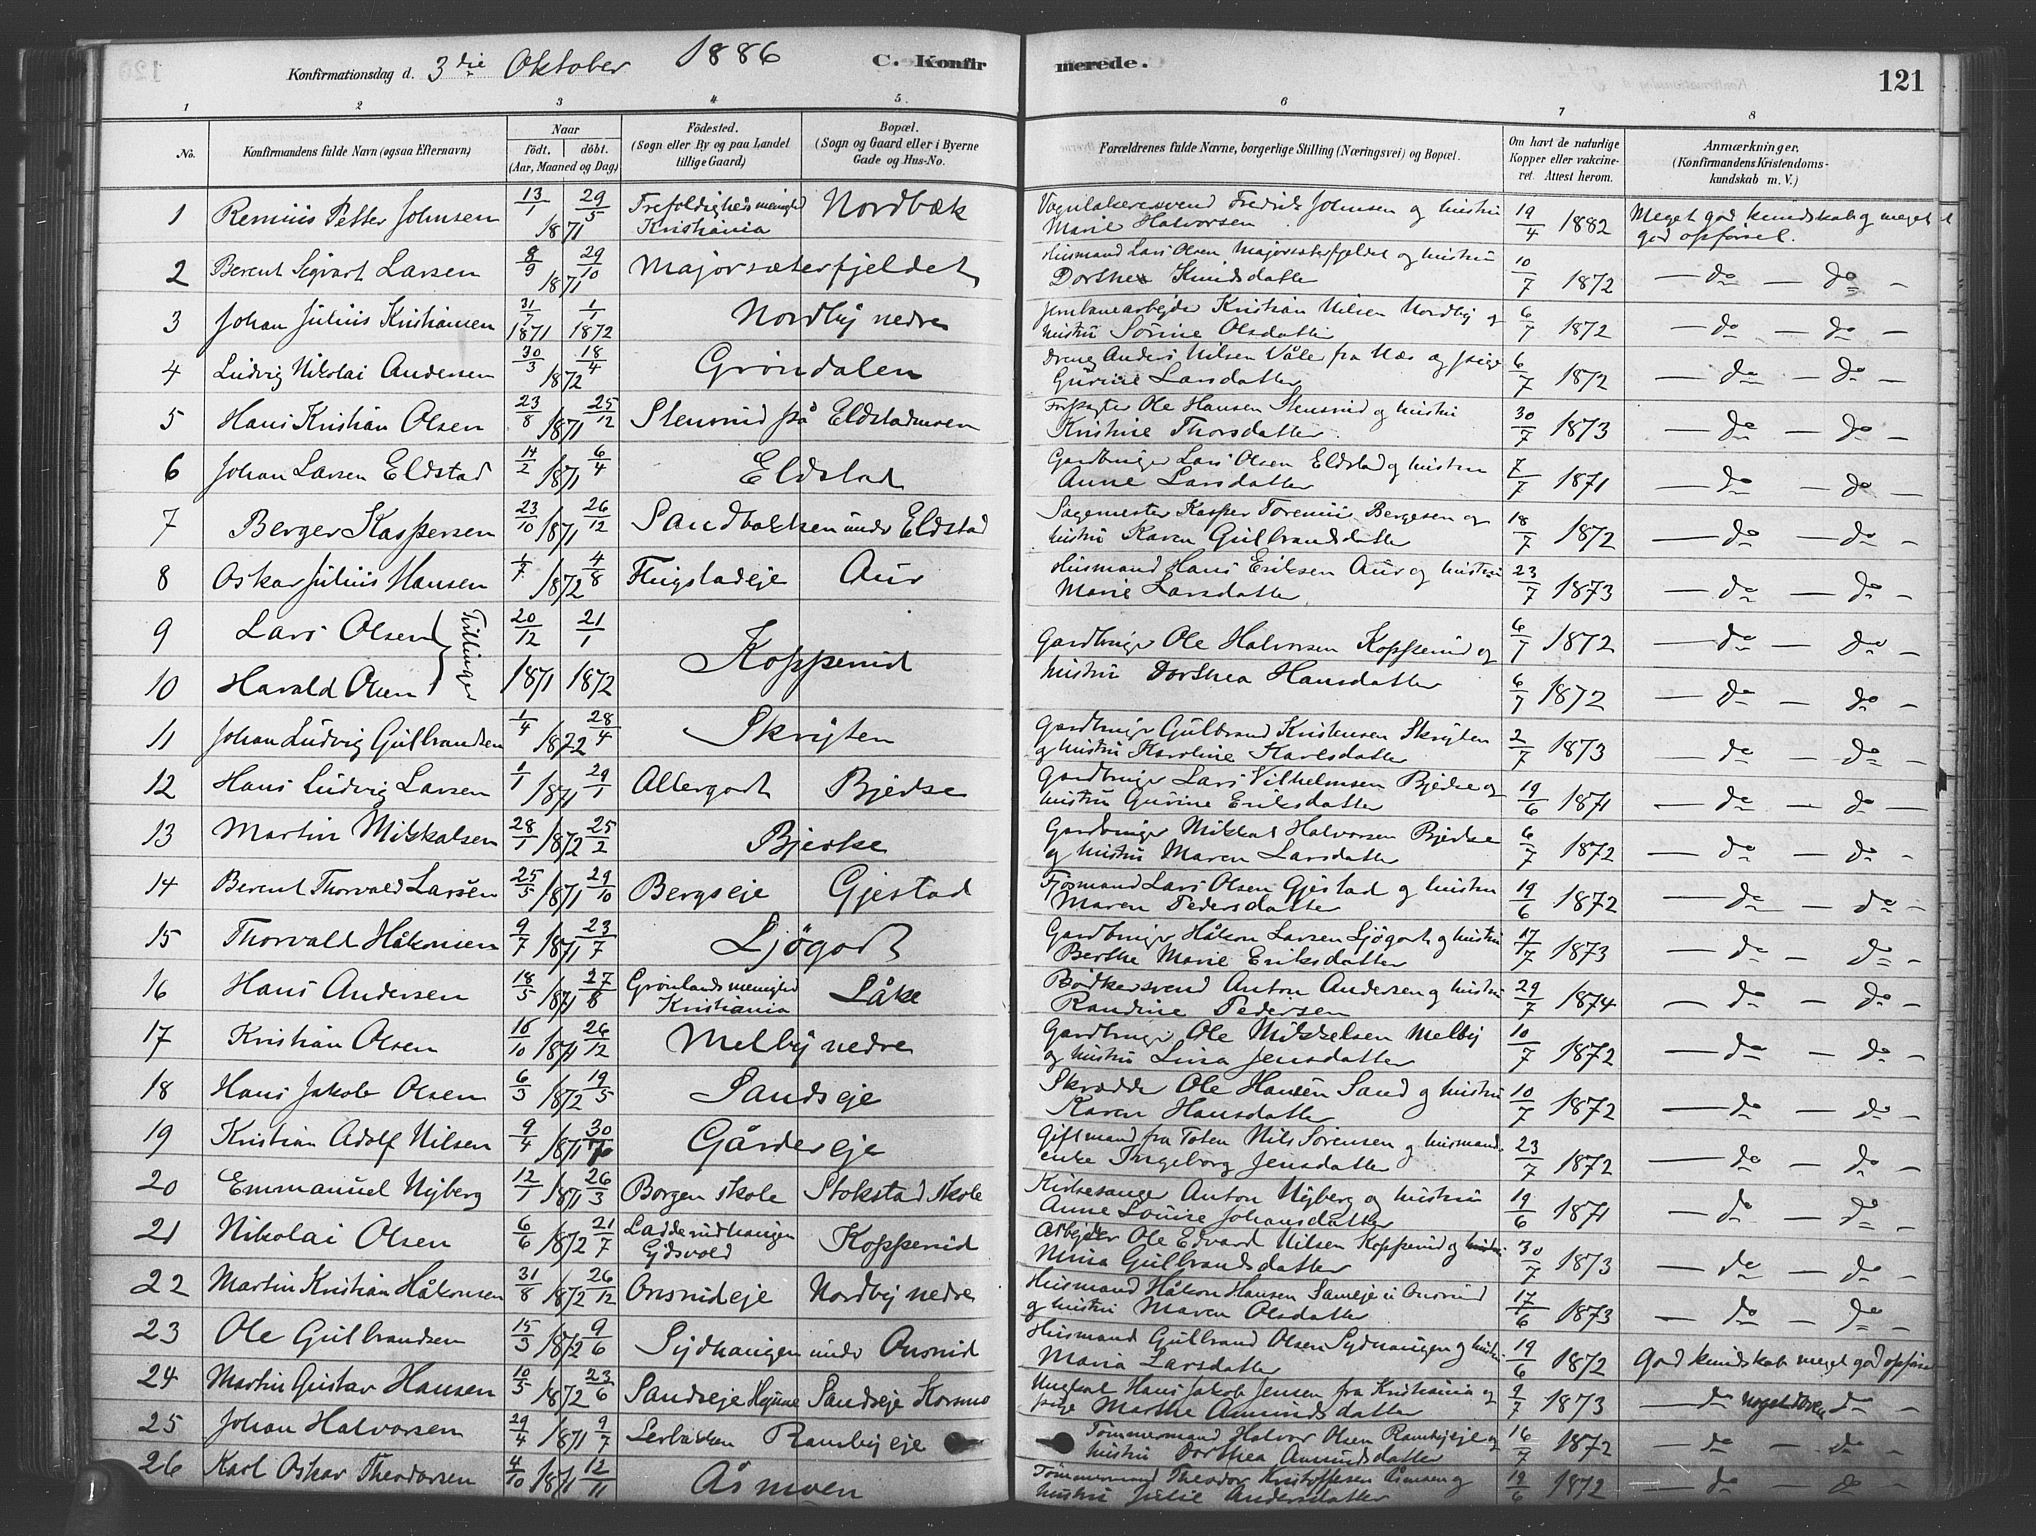 121
Konfirmationsdag d. 3die Oktober 1886 C. Konfir merede.
1 2 3 4 5. 6 7 8
No.
Konfirmandens fulde Navn (ogsaa Efternavn).
Naar
födt. döbt.
(Aar, Maaned og Dag)
Födested.
(Sogn eller By og paa Landet
tillige Gaard)
Bopæl.
(Sogn og Gaard eller i Byerne
Gade og Hus-No.
Forældrenes fulde Navne, borgerlige Stilling (Næringsvei) og Bopæl.
Om havt de naturlige
Kopper eller vaccine-
ret. Attest herom.
Anmærkninger.
(Konfirmandens Kristendoms-
kundskab m. V.)
1 Petter Johnsen 13/1 29/5 1871 Trefoldigheds menighed Kristiania Nordbæk
Fredrik Johnsen og hustru Marie Halvorsen 19/4 1882 Meget god kundskab og meget god opförsel.
2 Berent Sigvart Larsen 8/9 29/10 1871 Majorsæterfjeldet
Husmand Lars Olsen Majorsæterfjeldet og hustru Dorthea Knudsdatter 10/7 1872 — do — do —
3 Johan Julius Kristiansen 31/7 1871 1/1 1872 Nordby nedre
Jernbanearbeider Kristian Nilsen Nordby og hustru Sörine Olsdatter 6/7 1872 — do — do —
4 Ludvig Nikolai Andersen 30/3 18/4 1872 Gröndalen
Dreng Anders Nilsen Våler fra Næs og pige Gurine Larsdatter 6/7 1872 — do — do —
5 Hans Kristian Olsen 23/8 25/12 1871 Stensrud på Eldstadmoen
Ole Hansen Stensrud og hustru Kristine Thorsdatter 30/7 1873 — do — do —
6 Johan Larsen Eldstad 14/2 6/4 1871 Eldstad
Gardbruger Lars Olsen Eldstad og hustru Anne Larsdatter 7/7 1871 — do — do —
7 Berger Kaspersen 23/10 26/12 1871 Sandbakken under Eldstad
Sagmester Kasper Bergesen og hustru Karen Gulbrandsdatter 18/7 1872 — do — do —
8 Oskar Julius Hansen 1/7 4/8 1872 Flugstadeje Aur
Husmand Hans Eriksen Aur og hustru Marie Larsdatter 23/7 1873 — do — do —
9 Lars Olsen } Tvillinger 20/12 21/1 Kopperud
Gardbruger Ole Halvorsen Kopperud og 6/7 1872 — do — do —
10 Harald Olsen 1871 1872
hustru Dorthea Hansdatter 6/7 1872 — do do —
11 Johan Ludvig Gulbrandsen 1/4 28/4 1872 Skrigten
Gardbruger Gulbrand Kristensen Skrigten og hustru Karoline Karlsdatter 2/7 1873 — do — do —
12 Hans Ludvig Larsen 1/1 29/1 1871 Allergodt Bjerke
Gardbruger Lars Vilhelmsen Bjerke og hustru Gurine Eriksdatter 19/6 1871 — do — do —
13 Martin Mikkalsen 28/1 25/2 1872 Bjerke
Gardbruger Mikkal Halvorsen Bjerke og hustru Maren Larsdatter 6/7 1872 — do — do —
14 Berent Thorvald Larsen 25/5 29/10 1871 Bergseje Gjestad
Fjösmand Lars Olsen Gjestad og hustru Maren Pedersdatter 19/6 1872 — do — do —
15 Thorvald Håkonsen 9/7 23/7 1871 Ljögodt
Gardbruger Håkon Larsen Ljögodt og hustru Berthe Marie Eriksdatter 17/7 1873 — do — do —
16 Hans Andersen 18/5 27/8 1871 Grönlands menighed Kristiania Låke
Bödkersvend Anton Andersen og hustru Randine Pedersen 29/7 1874 — do — do —
17 Kristian Olsen 16/10 26/12 1871 Melby nedre
Gardbruger Ole Mikkelsen Melby og hustru Lina Jensdatter 10/7 1872 — do — do —
18 Hans Jakob Olsen 6/3 19/5 1872 Sandseje
Skrædder Ole Hansen Sand og hustru Karen Hansdatter 10/7 1872 — do — do —
19 Kristian Adolf Nilsen 9/4 30/ 1871 Gårdereje
Giftmand fra Toten Nils Sörensen og husmandsenke Ingeborg Jensdatter 23/7 1872 — do — do —
20 Emmanuel Nyberg 12/1 26/3 1871 Borgen skole Stokstad skole
Kirkesanger Anton Nyberg og hustru Anne Louise Johansdatter 19/6 1871 — do — do —
21 Nikolai Olsen 6/6 21/7 1872 Ladderudhaugen Eidsvold Kopperud
Arbejder Ole Edvard Nilsen Kopperud og hustru Nina Gulbrandsdatter 30/7 1873 — do — do —
22 Martin Kristian Håkonsen 31/8 26/12 1872 Onsrudeje Nordby nedre
Husmand Håkon Hansen og hustru Maren Olsdatter 17/6 1873 — do — do —
23 Ole Gulbrandsen 15/3 9/6 1872 Sydhaugen under Onsrud
Husmand Gulbrand Olsen Sydhaugen og hustru Maria Larsdatter 19/6 1872 God kundskab meget god opförsel
24 Martin Gustav Hansen 10/5 23/6 1872 Sandseje Sandseje Korsmo
Ungkarl Hans Jakob Jensen fra Kristiania og pige Marthe Amundsdatter 2/7 1873 — do do —
25 Johan Halvorsen 29/4 9/7 1871 Lerbakken Rambyeje
Tömmermand Halvor Olsen Rambyeje og hustru Dorthea Amundsdatter 16/7 1872 — do — do —
26 Karl Oskar Theodorsen 4/10 12/11 1871 Åsmoen
Tömmermand Theodor Kristoffersen Åsmoen og hustru Julie Andersdatter 19/6 1872 — do — do —